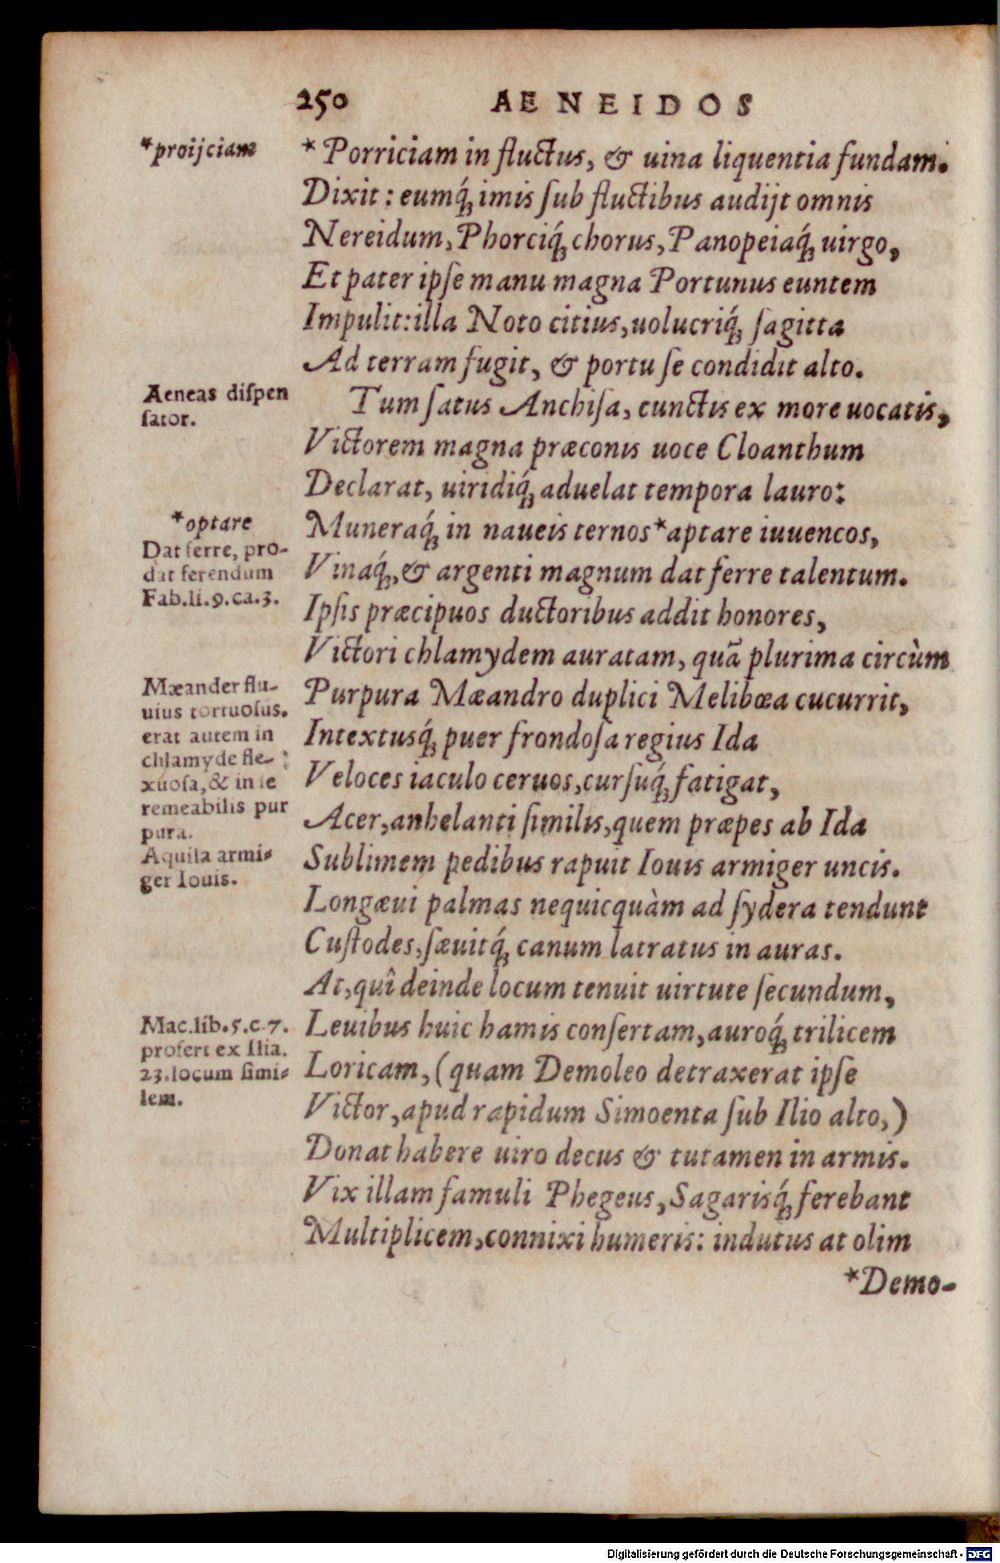 250 AENEIDOS
*proijciam
*Porriciam in fluctus, & uina liquentia fundam.
Dixit: eumq́; imis ſub fluctibus audijt omnis
Nereidum, Phorciq́; chorus, Panopeiaq́; uirgo,
Et pater ipſe manu magna Portunus euntem
Impulit: illa Noto citius, uolucriq́; ſagitta
Ad terram fugit, & portu ſe condidit alto.
Aeneas diſpen
ſator.
Tum ſatus Anchiſa, cunctis ex more uocatis,
Victorem magna præconis uoce Cloanthum
Declarat, uiridiq́; aduelat tempora lauro:
*optare
Dat ferre, pro-
dat ferendum
Fab.li.9.ca.3.
Muneraq́; in naueis ternos *aptare iuuencos,
Vinaq́;, & argenti magnum dat ferre talentum.
Ipſis præcipuos ductoribus addit honores,
Victori chlamydem auratam, quã plurima circùm
Mæander flu-
uius tortuoſus.
erat autem in
chlamyde fle-
xuoſa, & in ſe
remeabilis pur
pura.
Aquila armi-
ger Iouis.
Purpura Mæandro duplici Melibœa cucurrit,
Intextusq́; puer frondoſa regius Ida
Veloces iaculo ceruos, curſuq́; fatigat,
Acer, anhelanti ſimilis, quem præpes ab Ida
Sublimem pedibus rapuit Iouis armiger uncis.
Longæui palmas nequicquàm ad ſydera tendunt
Cuſtodes, ſæuitq́; canum latratus in auras.
At, quî deinde locum tenuit uirtute ſecundum,
Mac.lib.5.c.7.
profert ex Ilia.
23.locum ſimi-
lem.
Leuibus huic hamis conſertam, auroq́; trilicem
Loricam, (quam Demoleo detraxerat ipſe
Victor, apud rapidum Simoenta ſub Ilio alto,)
Donat habere uiro decus & tutamen in armis.
Vix illam famuli Phegeus, Sagarisq́; ferebant
Multiplicem, connixi humeris: indutus at olim
*Demo-
Digitalisierung gefördert durch die Deutsche Forschungsgemeinschaft - DFG